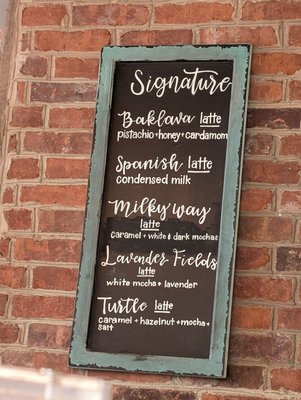 Signature
Baklava latte
pistachio+honey+cardamom
Spanish latte
condensed milk
Milky way
latte
caramel + white & dark mochas
Lavender Fields
latte
white mocha + lavender
Turtle latte
caramel + hazelnut + mocha +
salt